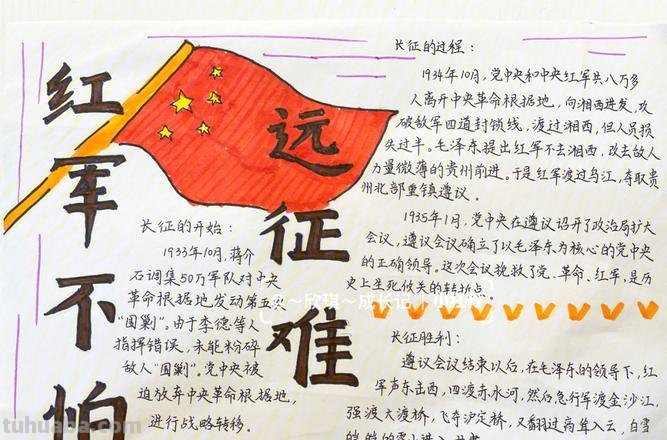 红军不怕
远征难
长征的开始：
1933年10月，蒋介
石调集50万军队对中央
革命根据地发动第五次
“围剿”。由于李德等人
指挥错误，未能粉碎
敌人“围剿”。党中央被
迫放弃中央革命根据地，
进行战略转移。
长征的过程：
1934年10月，党中央和中央红军共八万多
人离开中央革命根据地，向湘西进发，攻
破敌军四道封锁线，渡过湘西，但人员损
失过半。毛泽东提出红军不去湘西，改去敌人
力量微薄的贵州前进。于是红军渡过乌江，夺取贵
州北部重镇遵义。
1935年1月，党中央在遵义召开了政治局扩大
会议，遵义会议确立了以毛泽东为核心的党中央
的正确领导。这次会议挽救了党、革命、红军，是历
史上生死攸关的转折点。
欣琪～成长记
长征胜利：
遵义会议结束以后，在毛泽东的领导下，红
军声东击西，四渡赤水河，然后急行军渡金沙江，
强渡大渡桥，飞夺泸定桥，又翻过高耸入云，白雪
tuhuaba.com